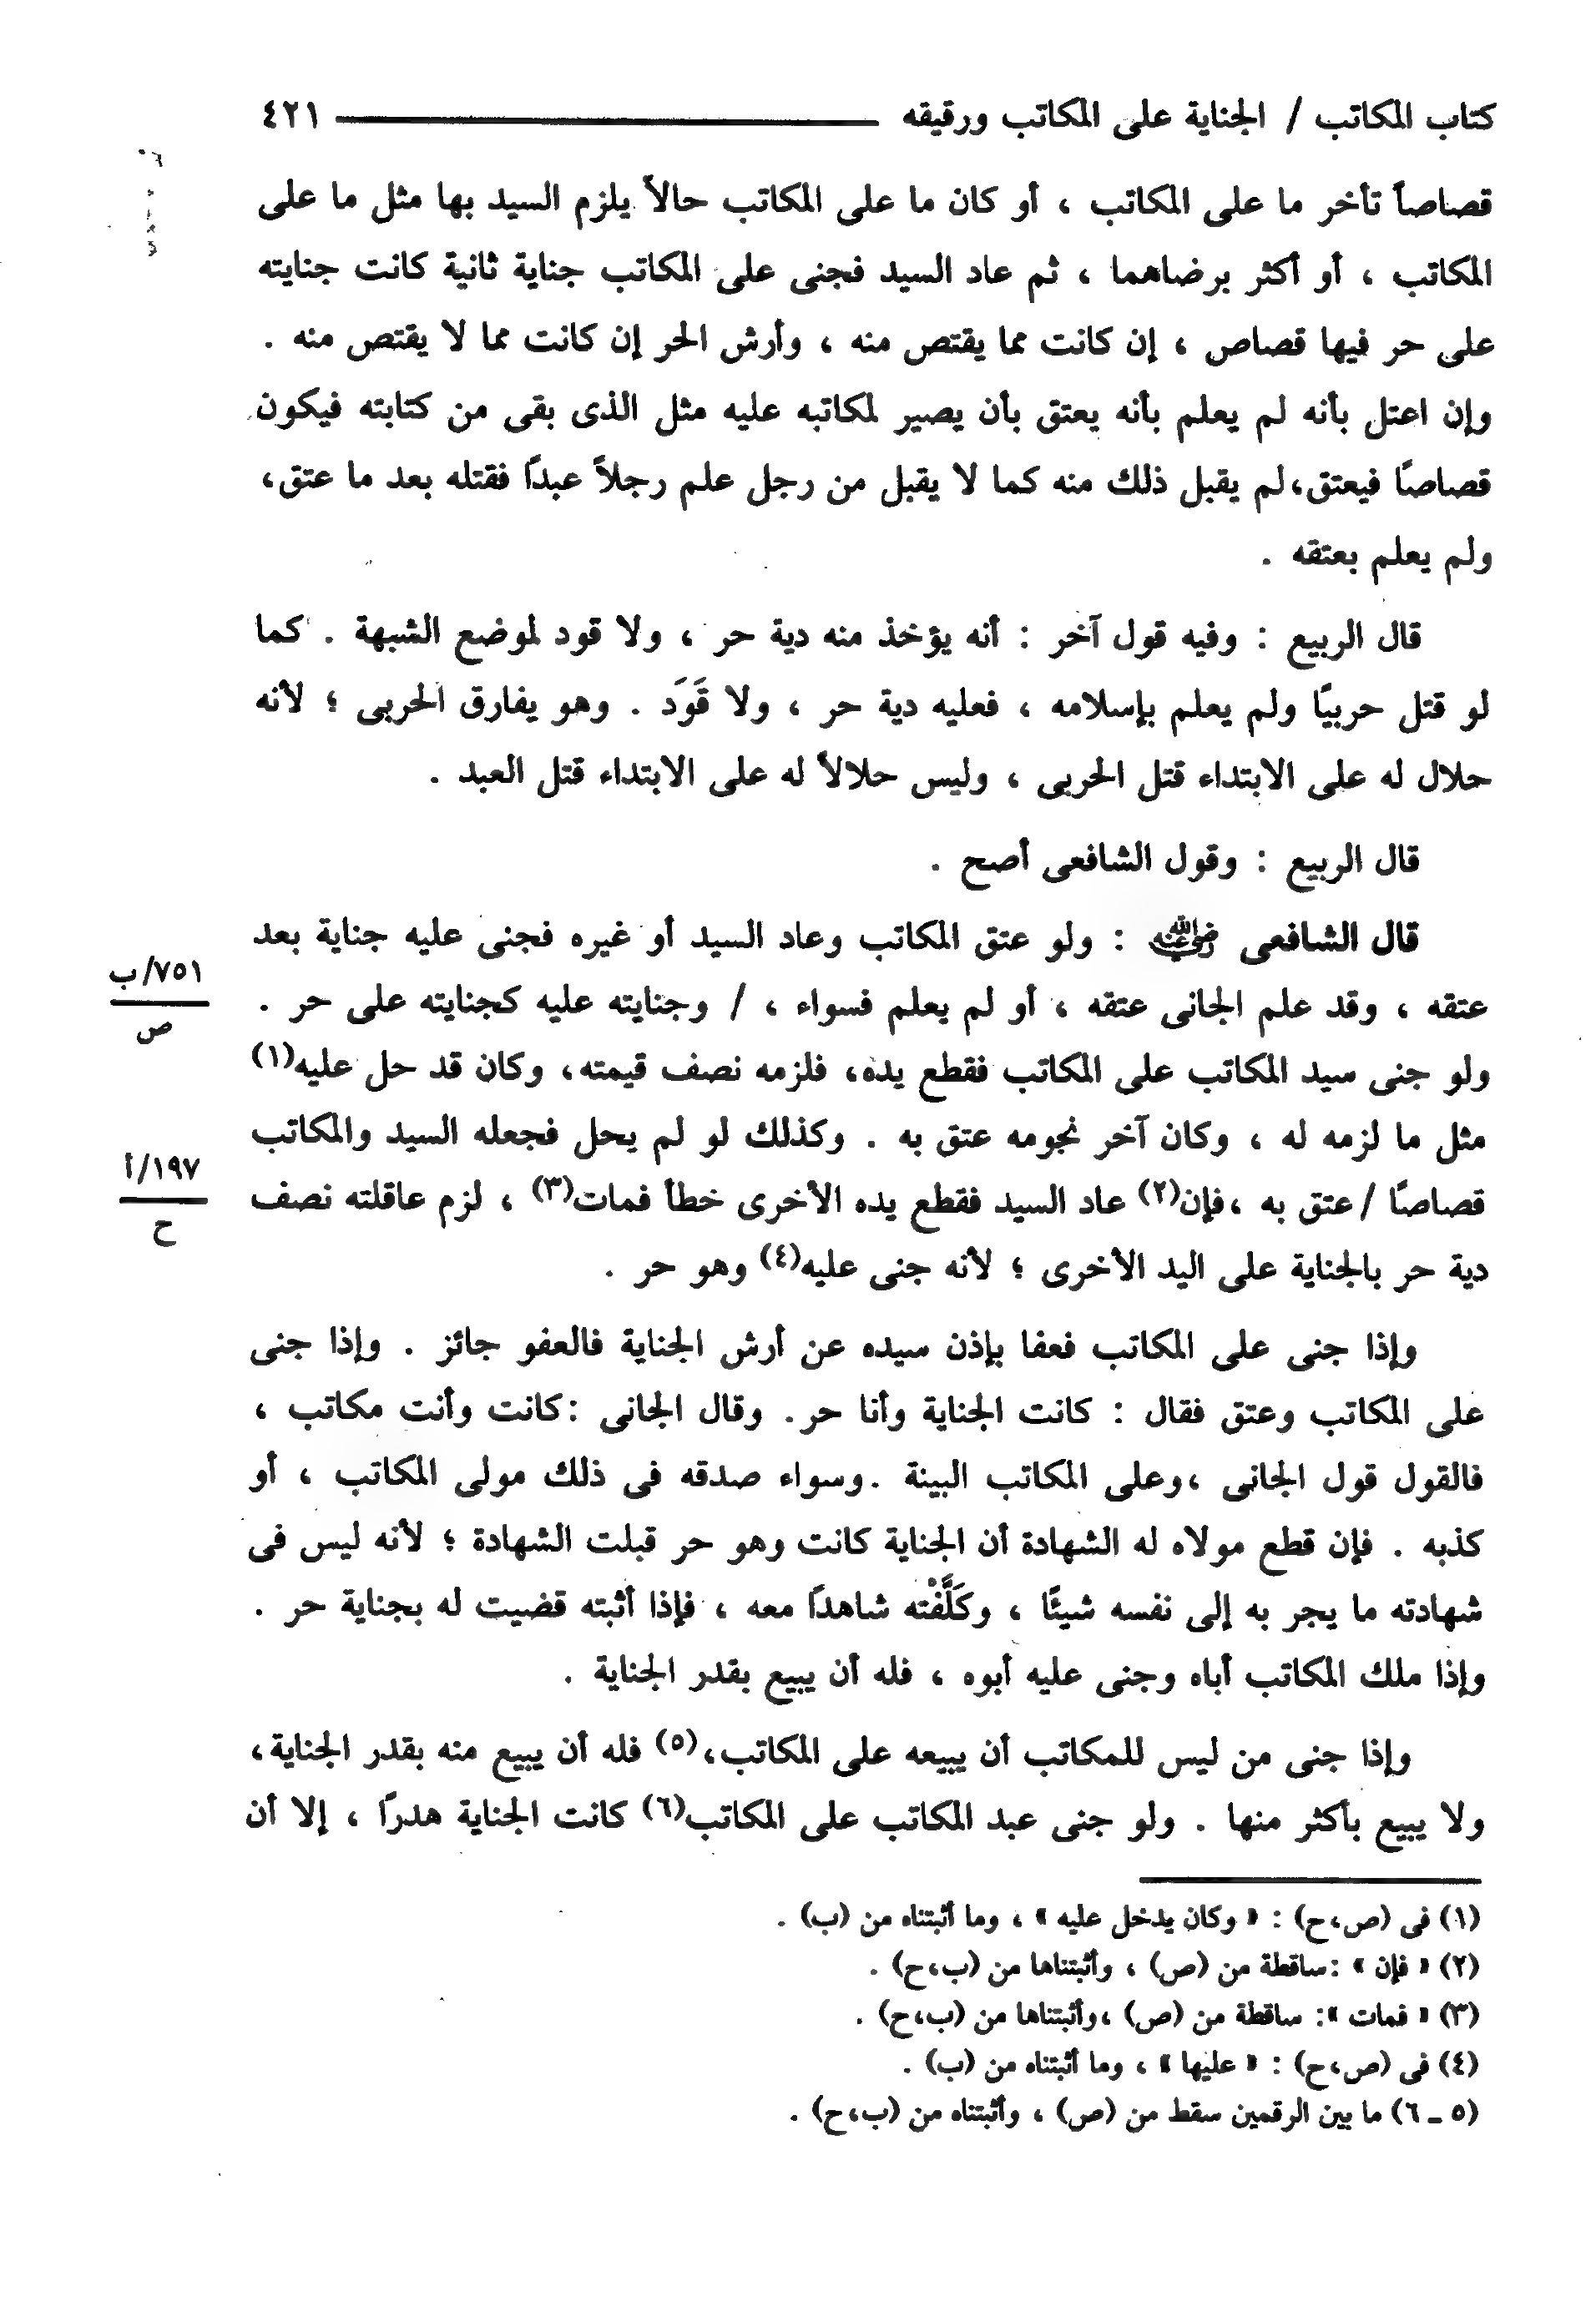 كتاب المكاتب / الجناية على المكاتب ورقيقه ٤٢١
قصاصاً تأخر ما على المكاتب ، أو كان ما على المكاتب حالاً يلزم السيد بها مثل ما على
المكاتب ، أو أكثر برضاهما ، ثم عاد السيد فجنى على المكاتب جناية ثانية كانت جنايته
على حر فيها قصاص ، إن كانت مما يقتص منه ، وأرش الحر إن كانت مما لا يقتص منه .
وإن اعتل بأنه لم يعلم بأنه يعتق بأن يصير لمكاتبه عليه مثل الذى بقى من كتابته فيكون
قصاصًا فيعتق،لم يقبل ذلك منه كما لا يقبل من رجل علم رجلاً عبدًا فقتله بعد ما عتق،
ولم يعلم بعتقه .
قال الربيع : وفيه قول آخر : أنه يؤخذ منه دية حر ، ولا قود لموضع الشبهة . كما
لو قتل حربيًا ولم يعلم بإسلامه ، فعليه دية حر ، ولا قَوَد . وهو يفارق الحربى ؛ لأنه
حلال له على الابتداء قتل الحربى ، وليس حلالاً له على الابتداء قتل العبد .
قال الربيع : وقول الشافعى أصح .
قال الشافعى رضي الله عنه : ولو عتق المكاتب وعاد السيد أو غيره فجنى عليه جناية بعد
عتقه ، وقد علم الجانى عتقه ، أو لم يعلم فسواء ، / وجنايته عليه كجنايته على حر .
٧٥١/ب
ص
ولو جنى سيد المكاتب على المكاتب فقطع يده، فلزمه نصف قيمته، وكان قد حل عليه(١)
مثل ما لزمه له ، وكان آخر نجومه عتق به . وكذلك لو لم يحل فجعله السيد والمكاتب
قصاصًا /عتق به ،فإن(٢) عاد السيد فقطع يده الأخرى خطأ فمات(٣) ، لزم عاقلته نصف
١٩٧/أ
ح
دية حر بالجناية على اليد الأخرى ؛ لأنه جنى عليه(٤) وهو حر .
وإذا جنى على المكاتب فعفا بإذن سيده عن أرش الجناية فالعفو جائز . وإذا جنى
على المكاتب وعتق فقال : كانت الجناية وأنا حر. وقال الجانى :كانت وأنت مكاتب ،
فالقول قول الجانى ،وعلى المكاتب البينة .وسواء صدقه فى ذلك مولى المكاتب ، أو
كذبه . فإن قطع مولاه له الشهادة أن الجناية كانت وهو حر قبلت الشهادة ؛ لأنه ليس فى
شهادته ما يجر به إلى نفسه شيئًا ، وكَلَّفْته شاهدًا معه ، فإذا أثبته قضيت له بجناية حر .
وإذا ملك المكاتب أباه وجنى عليه أبوه ، فله أن يبيع بقدر الجناية .
وإذا جنى من ليس للمكاتب أن يبيعه على المكاتب،(٥) فله أن يبيع منه بقدر الجناية،
ولا يبيع بأكثر منها . ولو جنى عبد المكاتب على المكاتب(٦) كانت الجناية هدرًا ، إلا أن
(١) فى (ص،ح) : « وكان يدخل عليه » ، وما أثبتناه من (ب) .
(٢) « فإن » :ساقطة من (ص) ، وأثبتناها من (ب،ح) .
(٣) « فمات »: ساقطة من (ص) ،وأثبتناها من (ب،ح) .
(٤) فى (ص،ح) : « عليها » ، وما أثبتناه من (ب) .
(٥ ـ ٦) ما بين الرقمين سقط من (ص) ، وأثبتناه من (ب،ح) .